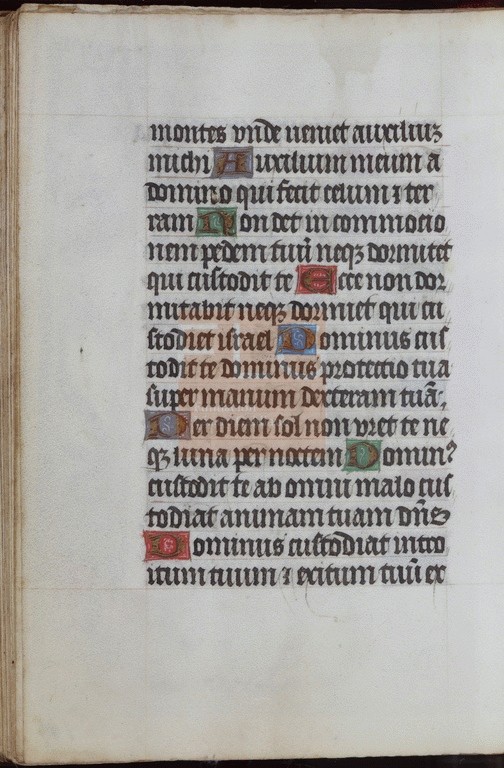 montes vnde veniet auxiliuꝫ
michi Auxilium meum a
domino qui fecit celum ⁊ ter
ram Non det in commocio
nem pedem tuū neqꝫ dormitet
qui custodit te Ecce non dor
mitabit neqꝫ dormiet qui cu
stodiet israel Dominus cus
todit te dominus protectio tua
super manum dexteram tuā
Per diem sol non vret te ne
qꝫ luna per noctem Domin᷒
custodit te ab omni malo cus
todiat animam tuam dn̄s
Dominus custodiat intro
itum tuum ⁊ exitum tuū ex